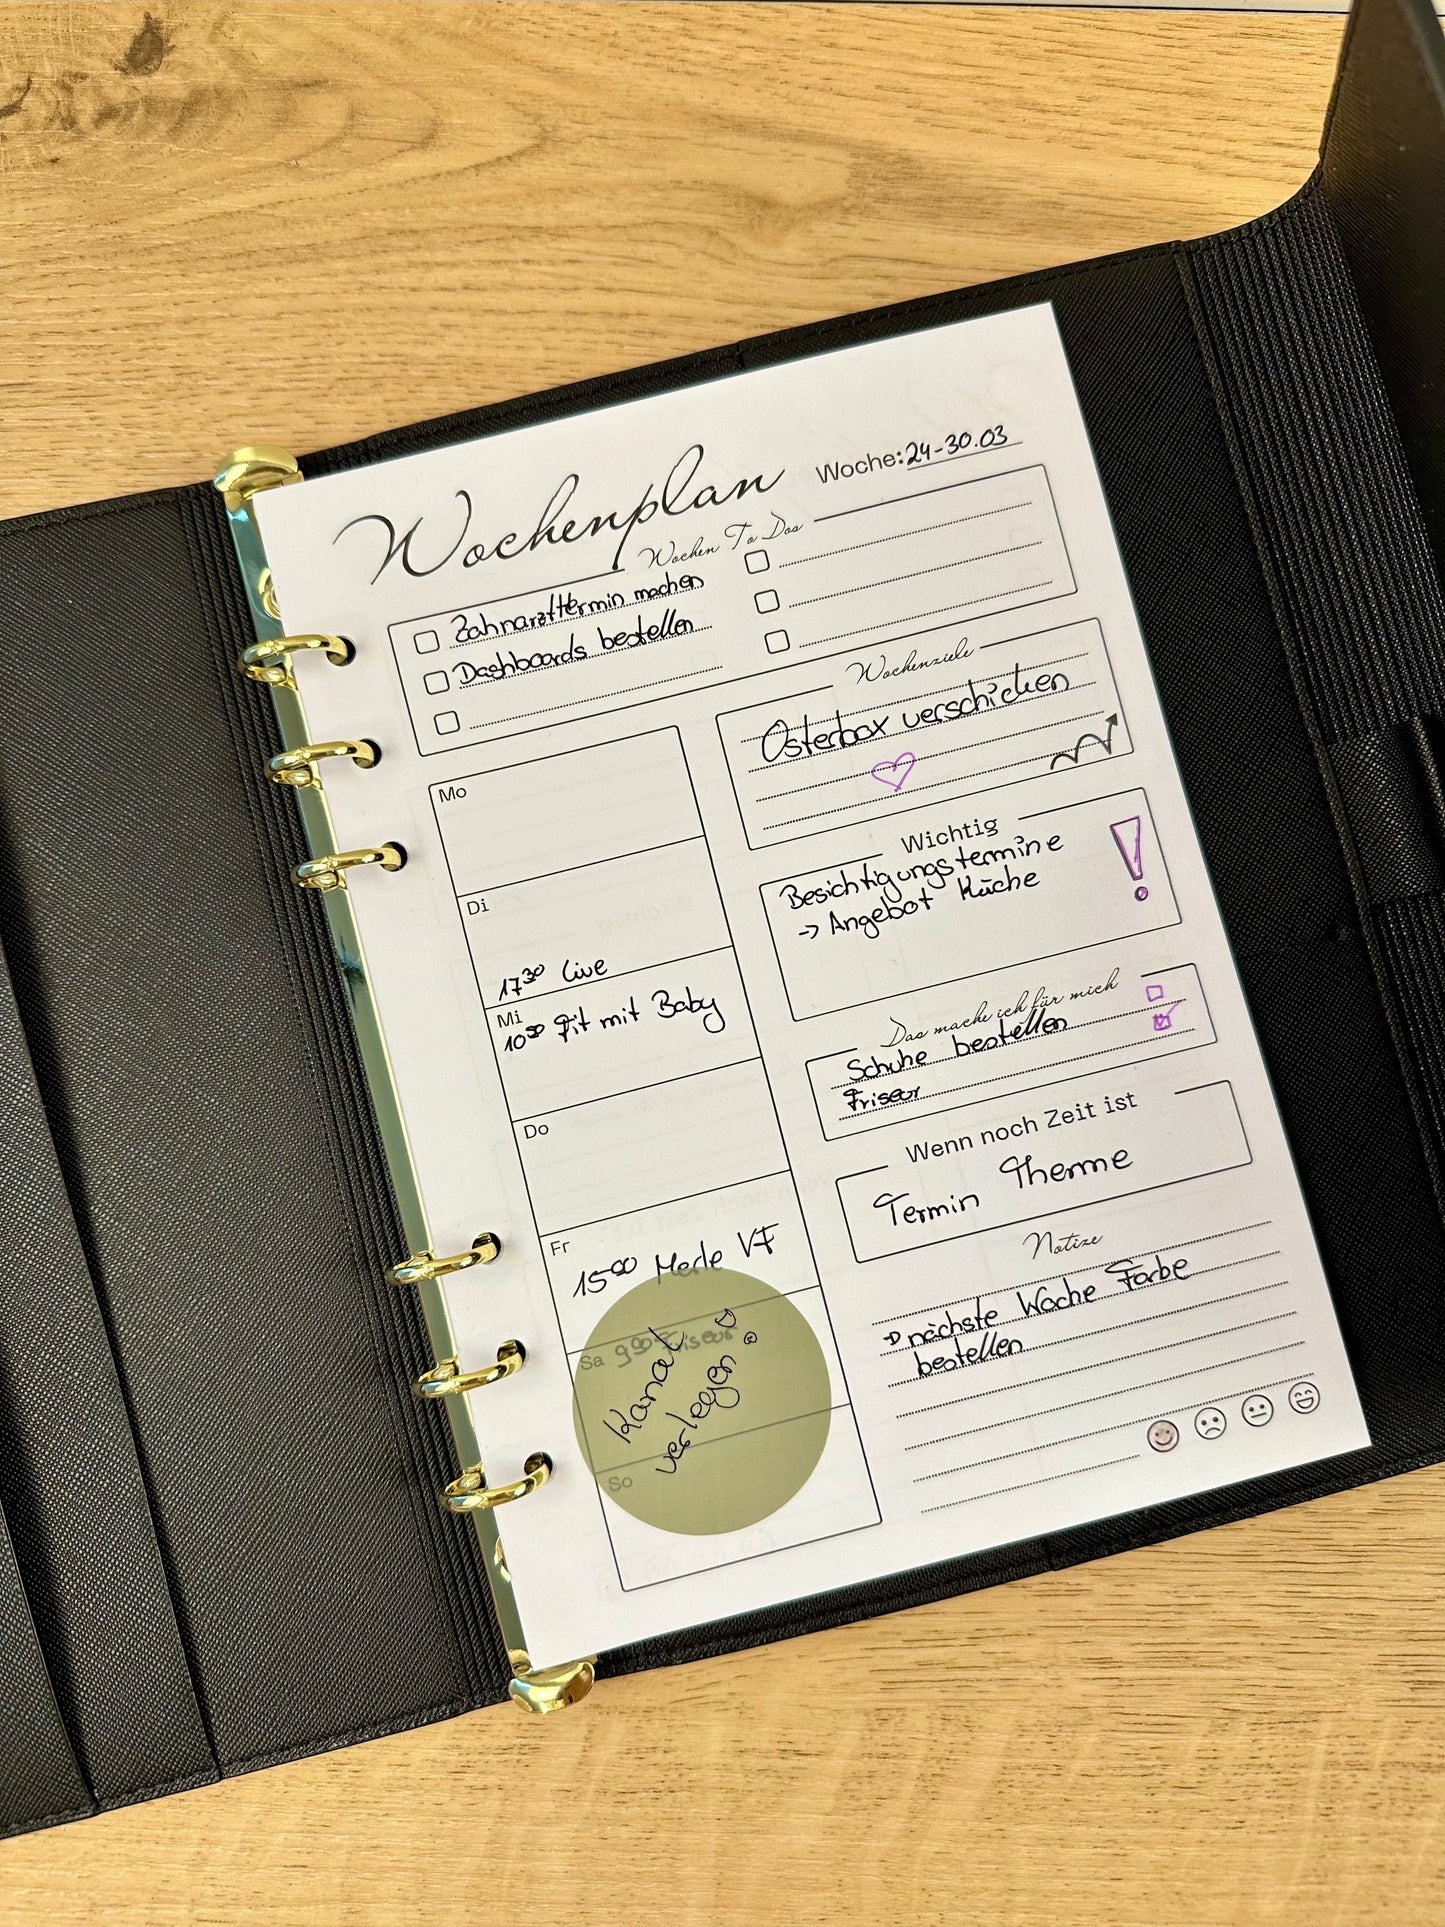 Wochenplan
Woche: 24-30.03
Wochen To Dos
Zahnarzttermin machen
Dashboards bestellen
Mo
Di
17³⁰ Live
Mi
10⁵⁰ Fit mit Baby
Do
Fr
15⁰⁰ Merle VF
Sa 9⁰⁰ Friseur
Kanal
verlegen!
So
Wochenziele
Osterbox verschicken
Wichtig
Besichtigungstermine
-> Angebot Küche
!
Das mache ich für mich
Schuhe bestellen
Friseur
Wenn noch Zeit ist
Termin Therme
Notize
→ nächste Woche Farbe
bestellen